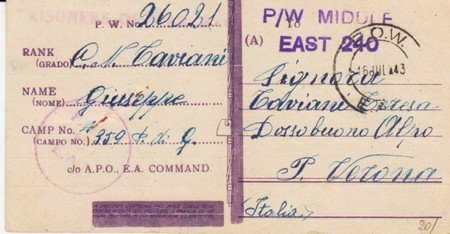 PRISONERS OF
P. W. No. 26021
RANK
(GRADO) C. N. Taviani
NAME
(NOME) Giuseppe
CAMP No.
(CAMPO NO.) 359 P. W. G.
c/o A.P.O., E.A. COMMAND.
P/W MIDDLE
EAST 240
(A) 18
P.O.W.
JUL 43
Signora
Taviani Teresa
Dossobuono Alpo
P. Verona
(Italia)
201